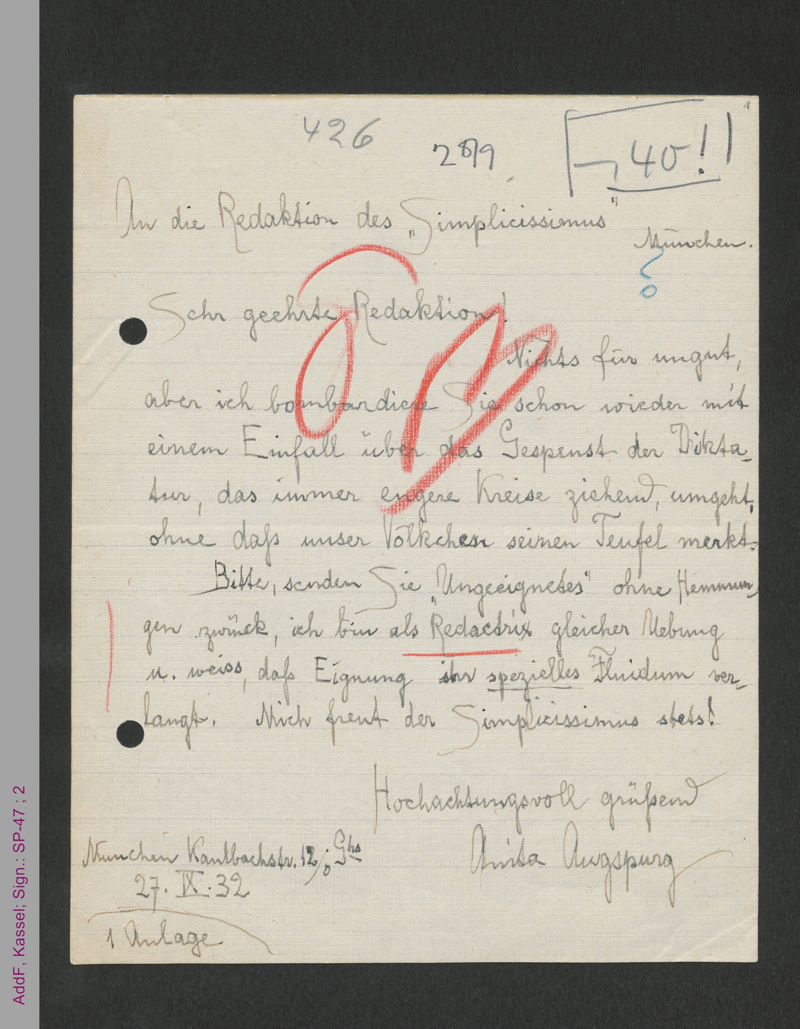 426
28/9
-,40!!
An die Redaktion des „Simplicissimus"
München.
?
Sehr geehrte Redaktion!
Nichts für ungut,
aber ich bombardiere Sie schon wieder mit
einem Einfall über das Gespenst der Dikta-
tur, das immer engere Kreise ziehend, umgeht,
ohne daß unser Völkchen seinen Teufel merkt.
Bitte, senden Sie „Ungeeignetes" ohne Hemmun-
gen zurück, ich bin als „Redactrix gleicher Uebung
u. weiss, daß Eignung ihr spezielles Fluidum ver-
langt. Mich freut der Simplicissimus stets!
Hochachtungsvoll grüßend
Anita Augspurg
München Kaulbachstr. 12/0 Ghs
27. IX. 32
1 Anlage
AddF, Kassel; Sign.: SP-47 ; 2